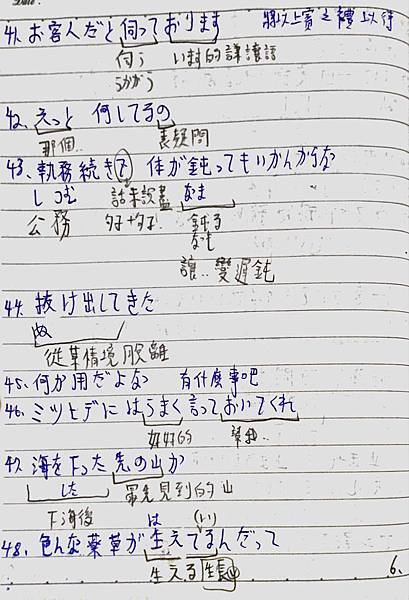 41. お客人だと伺っております 將以上賓之禮以待
伺う います的謙讓語
うかがう
42. えっと 何してるの
那個.. 表疑問
43、執務続きで 体が鈍ってもいかんからな
しつむ 話未說盡 なま
公務 句子+句子 鈍る
なまる
讓..變遲鈍
44. 抜け出してきた
ぬ
從某情境脫離
45. 何か用だよな 有什麼事吧
46. ミツヒデにはうまく言っておいてくれ
好好的 幫我..
47. 海を下った先の山か
した 最先見到的山
下海後
48. 色んな薬草が生えてるんだって
は (い)
生える 生長
6.